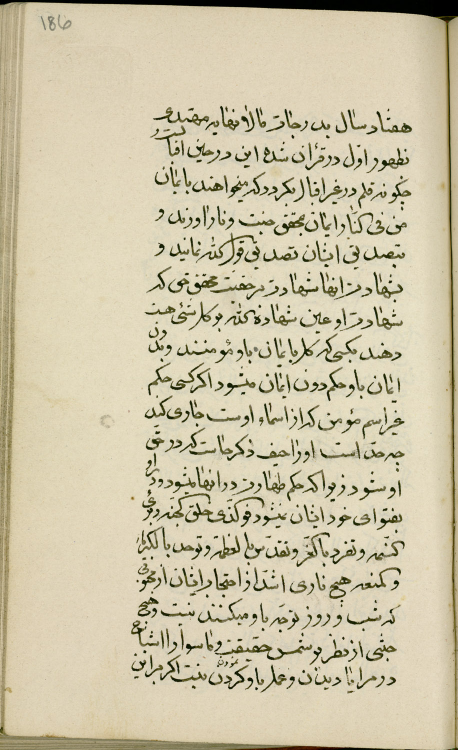 186
هفتاد سال بدرجات مالا نهایه مهتدی
بظهور اول در قران شده این در حین اقبال
چگونه قلم در غیر اقبال بگردد که میخواهند بایمان
من فی کتاب ایمان محقق جنت و نار اورند و
بتصدیق ایشان تصدیق قول الله نمایند و
بشهادت انها شهادت بر حقیت محقق حق که
شهادت او عین شهادة الله بر کل شئ هست
دهند بکسی که کل بایمان باو مؤمنند و بدون
ایمان باو حکم دون ایمان میشود اگر کسی حکم
غیر اسم مؤمن که از اسماء اوست جاری کند
چه حد است او را حیف ذکر جاست که در حق
او شود زیرا که حکم طهارت در انها نمیشود و او را
بفتوای خود ایشان نمیشود فو الذی خلق الحبة و برئ
النسمه و تفرد بالعز و تقدس بالعظمة و توحد بالکبریاء
و هیچ ناری اشد از احتجاب ایشان از محبوبی
که شب و روز توجه باو میکنند نیست و هیچ
جنتی از نظر بر شمس حقیقت و ما سوا را اشباح
در مرایا دیدن و عمل باو کردن نبوده نیست اگر مرد این